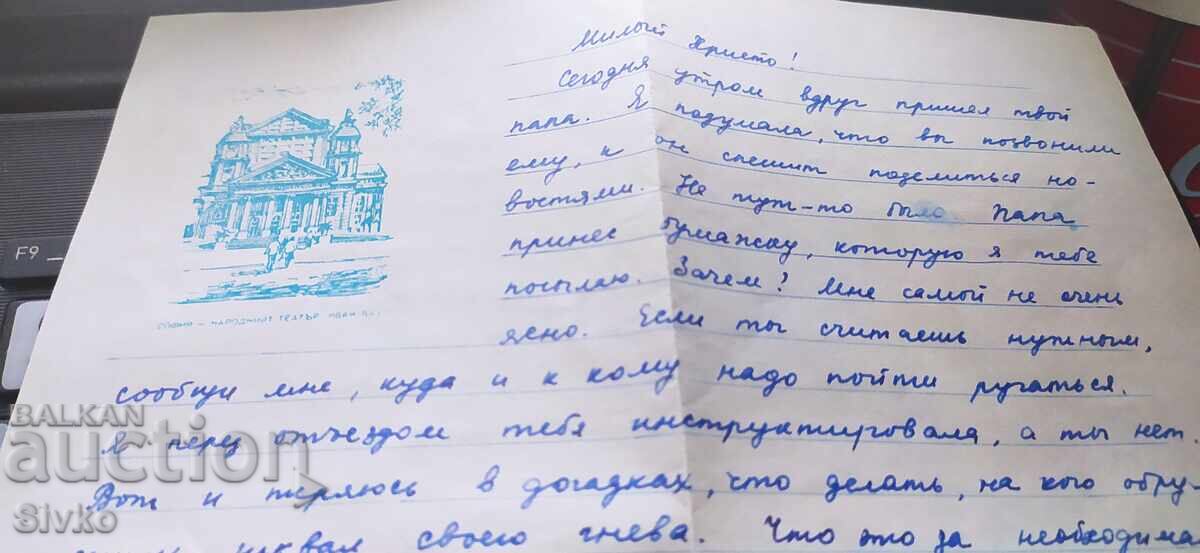 Милый Христо!
Сегодня утром вдруг пришел твой
папа. Я подумала, что вы позвонили
ему, и он спешит поделиться но-
востями. Не тут-то было Папа
принес бумажку, которую я тебе
посылаю. Зачем? Мне самой не очень
ясно. Если ты считаешь нужным,
сообщи мне, куда и к кому надо пойти ругаться.
Я перед отъездом тебя инструктировала, а ты нет.
Вот и теряюсь в догадках, что делать, на кого обру-
своего гнева. Что это за необходима
СОФИЯ - НАРОДНИЯТ ТЕАТЪР
F9
BALKAN
auction
Sivko